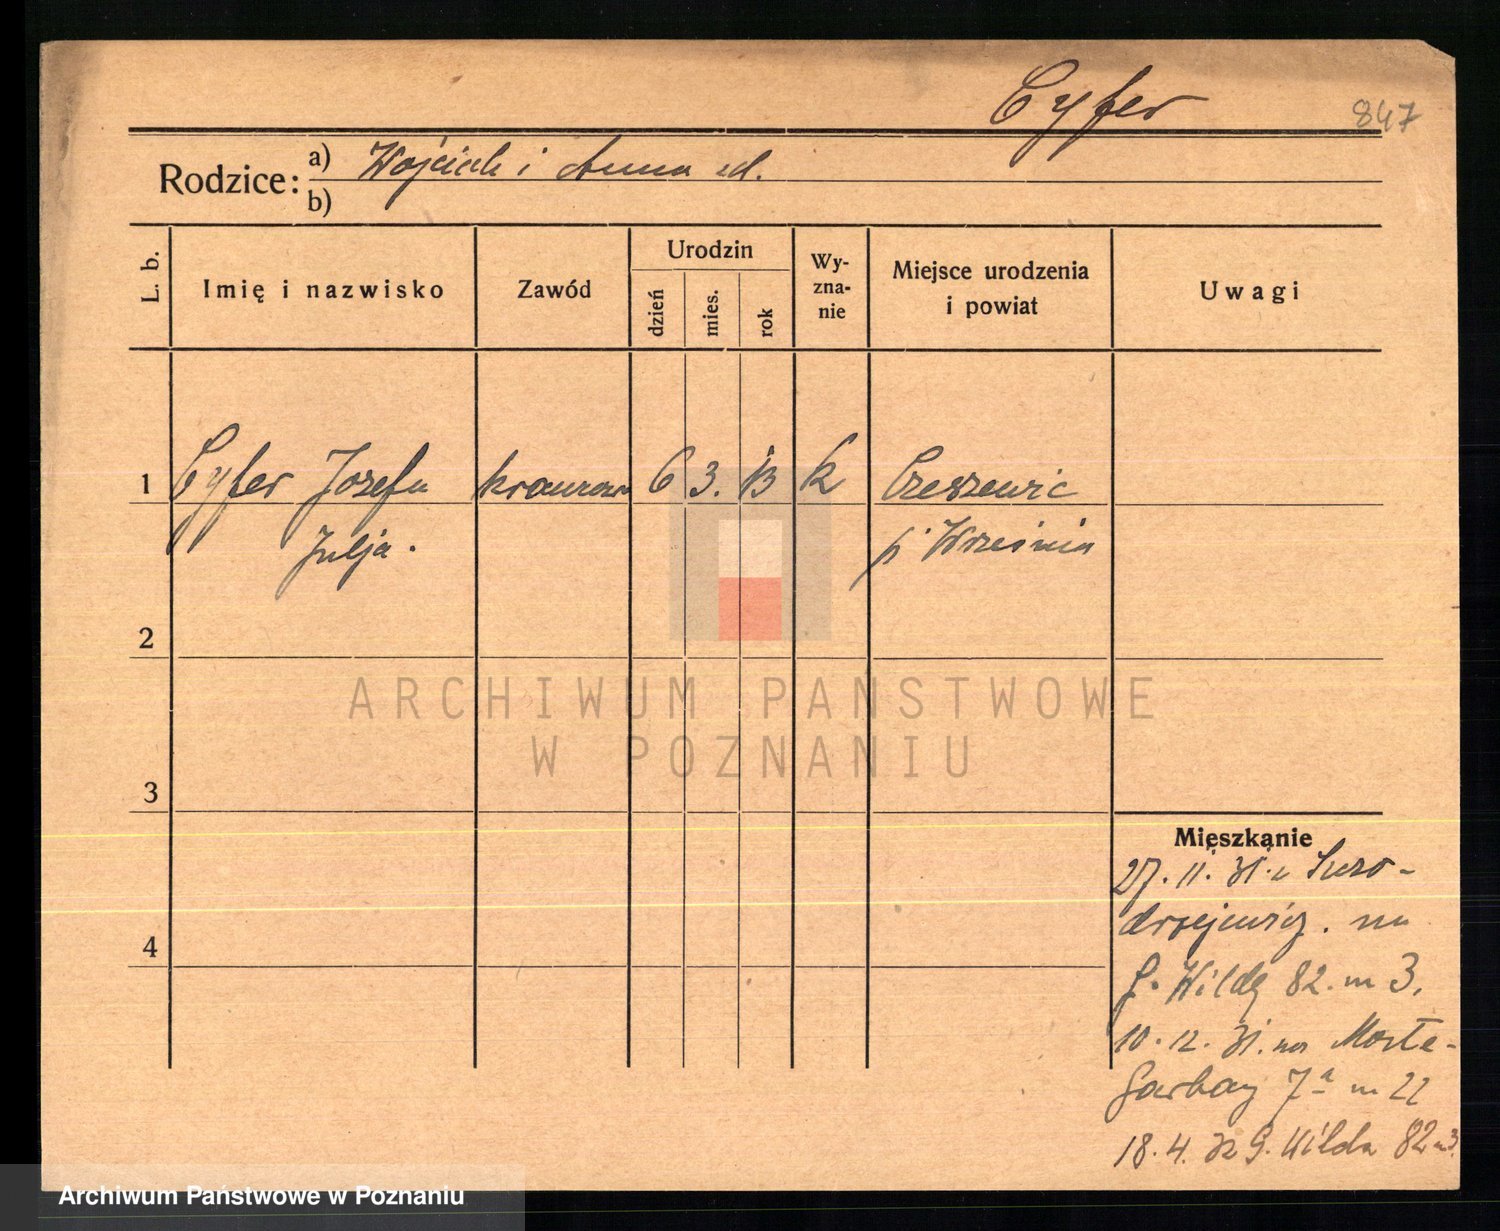 Cyfer
847
Rodzice: a) Wojciech i Anna zd.
b)
L. b.
Imię i nazwisko
Zawód
Urodzin
dzień
mies.
rok
Wy-
zna-
nie
Miejsce urodzenia
i powiat
Uwagi
1 Cyfer Józefa krawcowa 6 3. 13 k Czeszewic
Julja. p. Września
2
3
4
Mieszkanie
27. 11. 31. z
drzejewicz. na
G. Wildę 82. m 3.
10. 12. 31. na Małe-
Garbary 7a m 22
18. 4. 32 G. Wilda 82 m 3.
ARCHIWUM PAŃSTWOWE
W POZNANIU
Archiwum Państwowe w Poznaniu